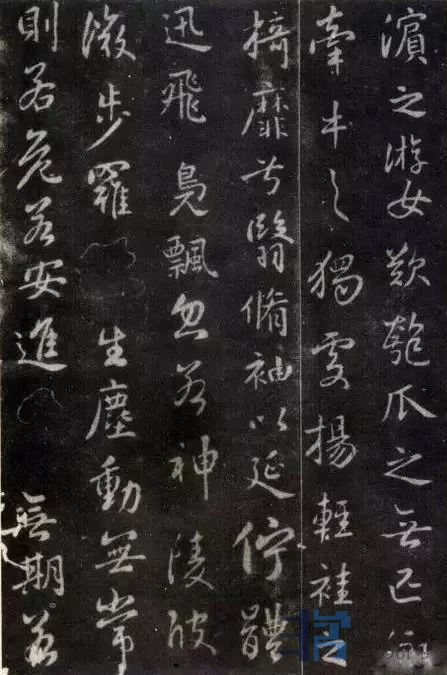 濱之游女歎匏瓜之無匹
牽牛之獨處揚輕袿之
猗靡兮翳脩袖以延佇體
迅飛鳧飄忽若神陵波
微步羅生塵動無常
則若危若安進無期若